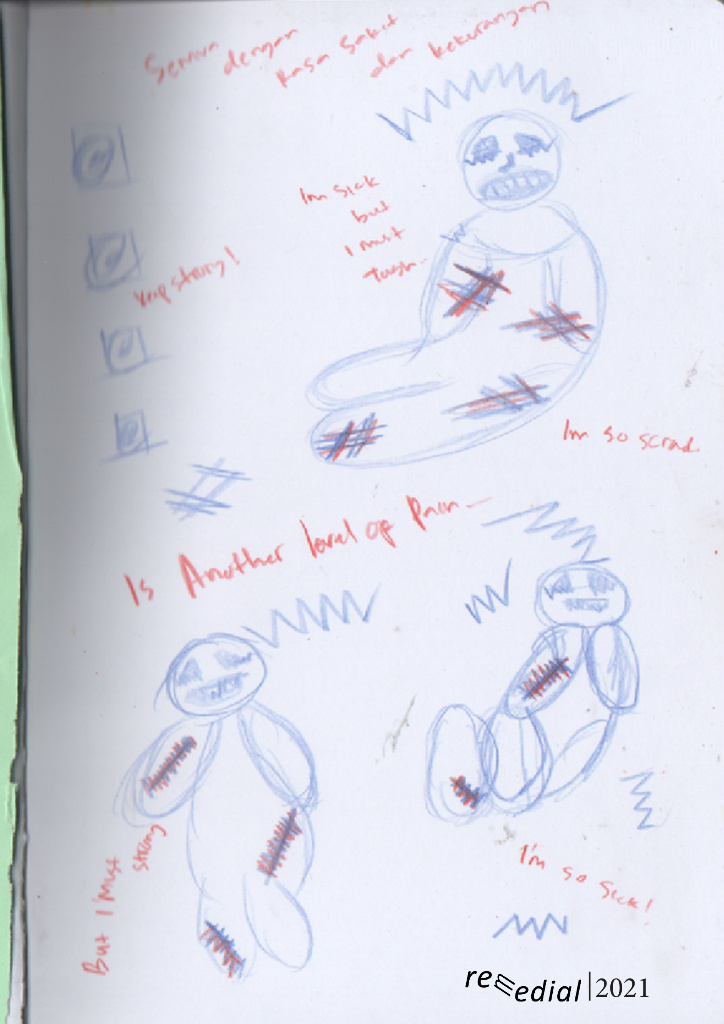 Semua dengan
Rasa sakit
dan kekurangan
Im sick
but
I must
Tough..
Keep strong!
Im so scrad.
Is Another level of Pain_
But I Must
strong
I'm so sick!
remedial|2021